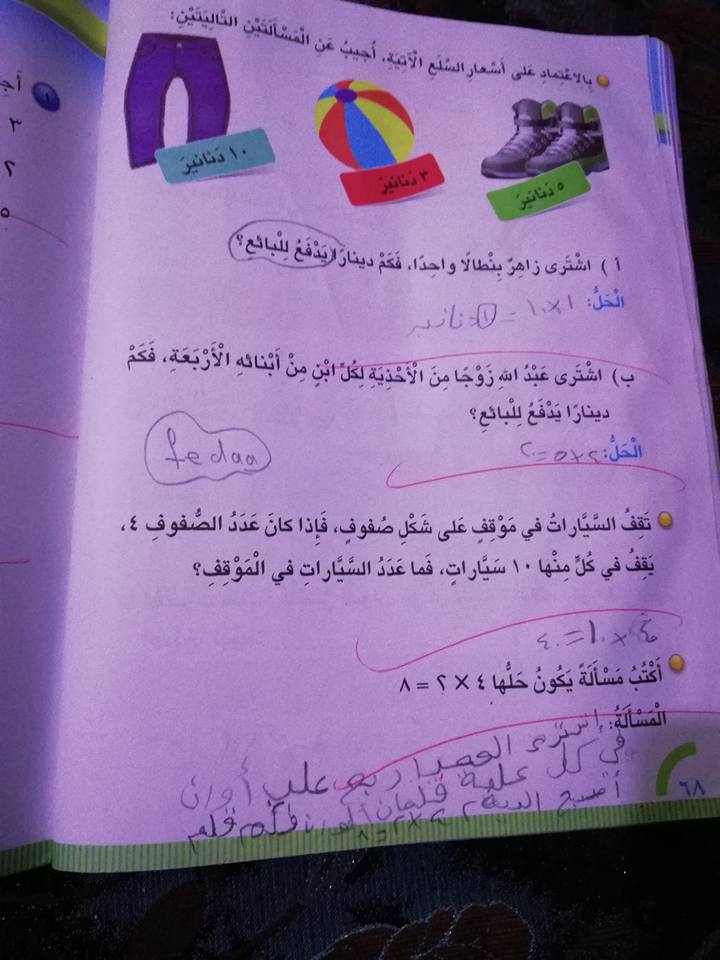 بِالِاعْتِمادِ عَلى أَسْعارِ السِّلَعِ الْآتِيَةِ، أُجيبُ عَنِ الْمَسْأَلَتَيْنِ التّالِيَتَيْنِ:
٥ دَنانيرَ
٣ دَنانيرَ
١٠ دَنانيرَ
أ ) اشْتَرى زاهِرٌ بِنْطالًا واحِدًا، فَكَمْ دينارًا يَدْفَعُ لِلْبائعِ؟
الْحَلُّ: ١×١٠ = ١٠ دنانير
ب) اشْتَرى عَبْدُ اللهِ زَوْجًا مِنَ الْأَحْذِيَةِ لِكُلِّ ابْنٍ مِنْ أَبْنائهِ الْأَرْبَعَةِ، فَكَمْ
دينارًا يَدْفَعُ لِلْبائِعِ؟
fedaa
الْحَلُّ: ٤×٥=٢٠
تَقِفُ السَّيَّاراتُ في مَوْقِفٍ عَلى شَكْلِ صُفوفٍ، فَإِذا كانَ عَدَدُ الصُّفوفِ ٤،
يَقِفُ في كُلٍّ مِنْها ١٠ سَيَّاراتٍ، فَما عَدَدُ السَّيَّاراتِ في الْمَوْقِفِ؟
٤×١٠=٤٠
أَكْتُبُ مَسْأَلَةً يَكُونُ حَلُّها ٤ × ٢ = ٨
الْمَسْأَلَةُ: اربع علب
في كل علبة قلمان فكم قلم
أصبح ٤×٢=٨
٦٨
أُجِ
١
٣
٢
٥